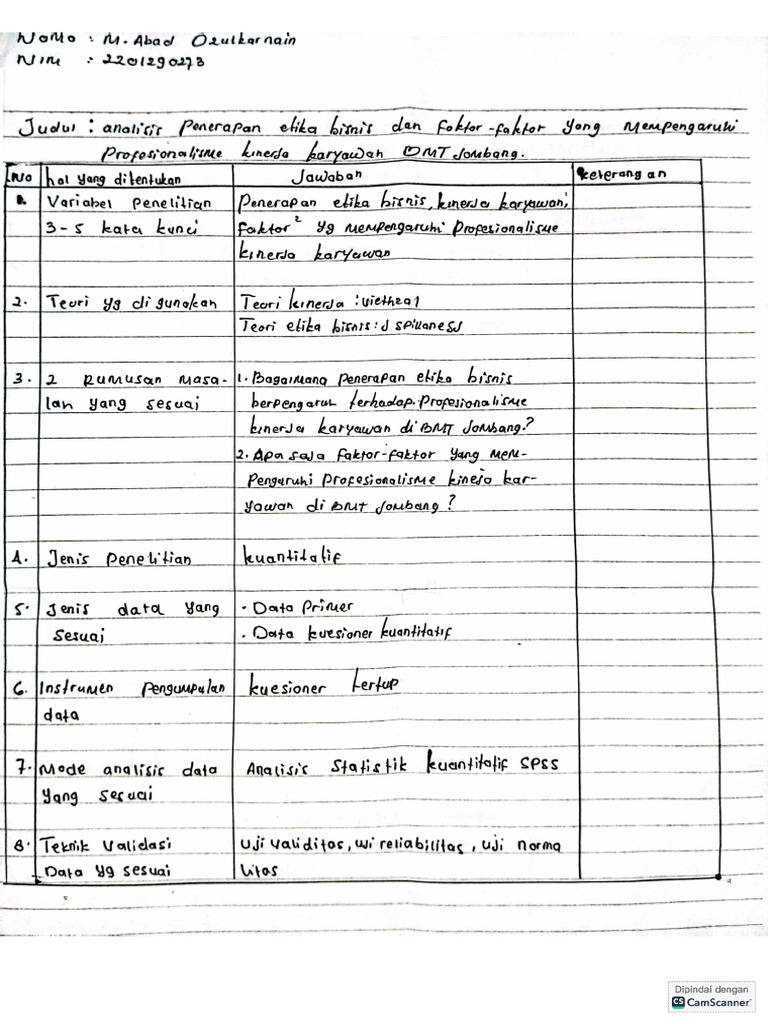 Nama : M. Abad Dzulkarnain
NIM : 2201290273
Judul : analisis Penerapan etika bisnis dan faktor-faktor yang Mempengaruhi
Profesionalisme kinerja karyawan BMT Jombang.
No hal yang ditentukan Jawaban keterangan
1. Variabel Penelitian Penerapan etika bisnis, kinerja karyawan,
3-5 kata kunci faktor² yg mempengaruhi Profesionalisme
kinerja karyawan
2. Teori yg di gunakan Teori kinerja :
Teori etika bisnis : J
3. 2 Rumusan Masa- 1. Bagaimana Penerapan etika bisnis
lah yang sesuai berpengaruh terhadap Profesionalisme
kinerja karyawan di BMT Jombang?
2. Apa saja faktor-faktor yang Mem-
Pengaruhi Profesionalisme kineja kar-
yawan di BMT Jombang?
4. Jenis Penelitian kuantitatif
5. Jenis data yang • Data Primer
Sesuai • Data kuesioner kuantitatif
6. Instrumen Pengumpulan kuesioner tertup
data
7. Mode analisis data Analisis Statistik kuantitatif SPSS
yang sesuai
8. Teknik Validasi Uji validitas, uji reliabilitas, uji norma
Data yg sesuai litas
Dipindai dengan
CS CamScanner